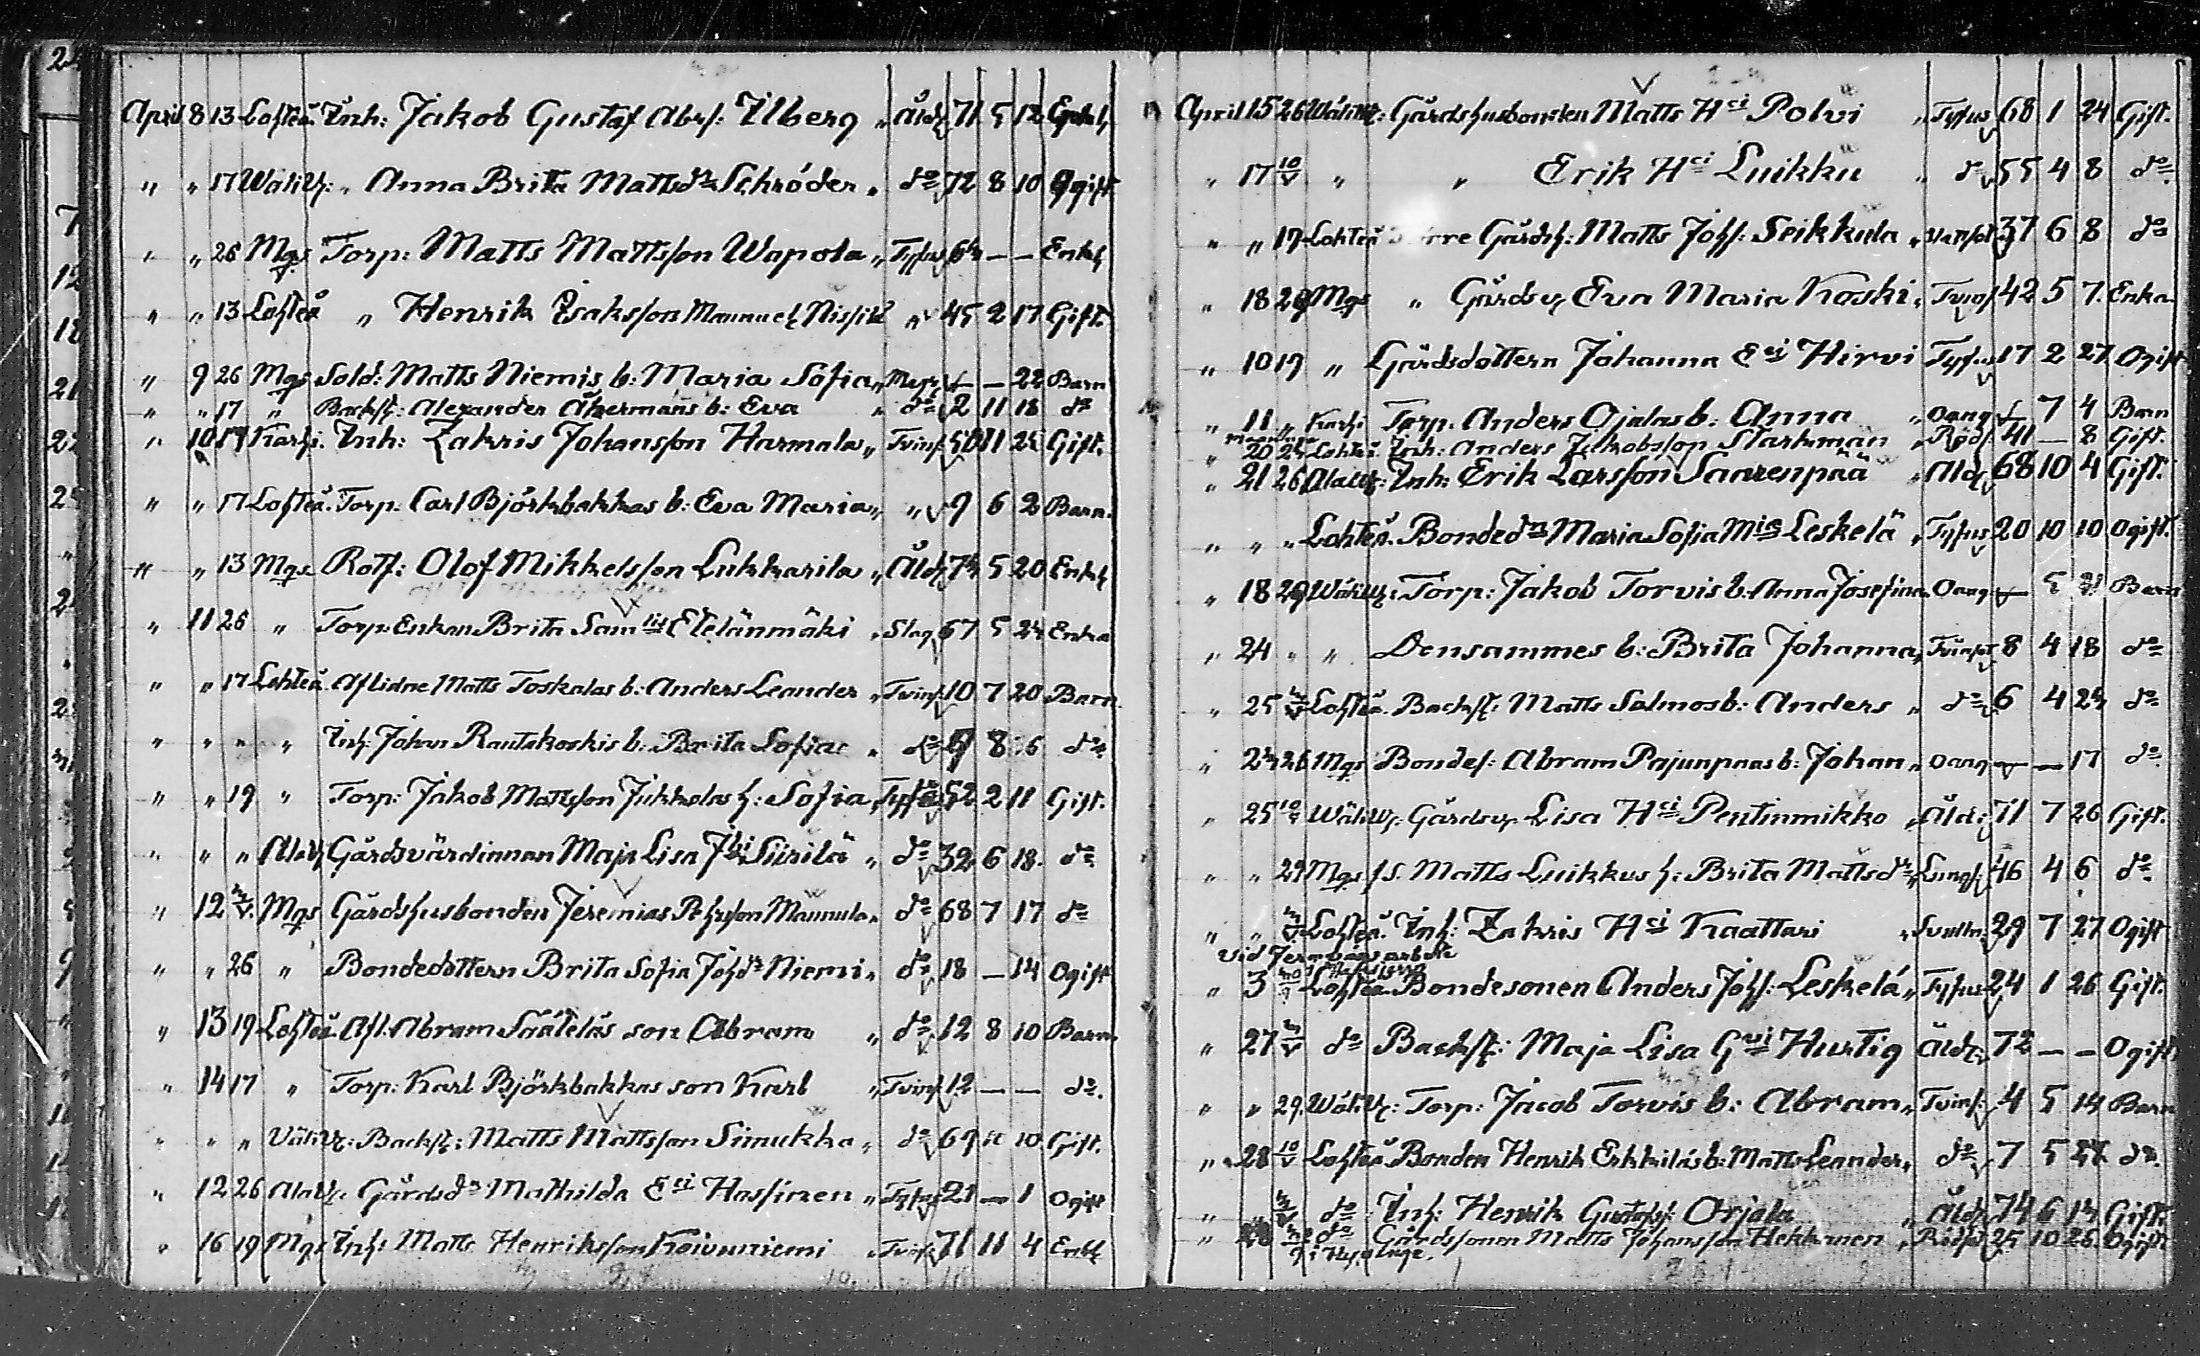 April 8 13 Lohteå Inh: Jakob Gustaf Abrs: Ilberg " Åld 71 5 12 Enkl
" " 17 Wäliv: " Anna Brita Mattsdr Schröder " do 72 8 10 Ogift
" " 26 Mgs Torp: Matts Mattsson Wapola " Tyfus — — Enkl
" " 13 Lohteå " Henrik Isaksson Mannuel Nissilä " 45 2 17 Gift.
" 9 26 Mgs Sold: Matts Niemis b: Maria Sofia " — — 22 Barn
" " 17 " Backst: Alexander Åkermans b: Eva " do 2 11 18 do
" 10 17 Karhi. Inh: Zakris Johansson Harmala " Tvins 11 Gift.
" " 17 Lohteå. Torp. Carl Björkbakkas b: Eva Maria " " 9 6 2 Barn.
" " 13 Mgs Rotf: Olof Mikkelsson Lukkarila " Åld 74 5 20 Enkl
" 11 26 " Torp: Enkan Brita Sam Etelänmäki " Slag 67 5 24 Enka
" " 17 Lohteå. Aflidne Matts Toskalas b: Anders Leander " Tvins 10 7 20 Barn
" " " " Inh: Johan Rautakoskis b: Brita Sofia " do 8 do
" " 19 " Torp: Jakob Mattsson Jukkolas h: Sofia " 52 2 11 Gift.
" " " Alav Gårdsvärdinnan Maja Lisa Siirilä " do 32 6 18. do
" 12 Mgs Gårdshusbonden Jeremias Mannula " do 68 7 17 do
" " 26 " Bondedottern Brita Sofia Johdr Niemi " do 18 — 14 Ogift
" 13 19 Lohteå. Afl: Abram Sääteläs son Abram " do 12 8 10 Barn
" 14 17 " Torp: Karl Björkbakkas son Karl " Tvins 12 — — do.
" " " Väliv: Backst: Matts Mattsson Simukka " do 69 10 Gift.
" 12 26 Alav. Gårdsdr Mathilda Eci Hassinen " Tyfus 21 — 1 Ogift
" 16 19 Mgs Inh: Matts Henriksson Koivuniemi " Tvins 71 11 4 Enkl
April 15 26 Wäliv: Gårdshusbonden Matts Hci Polvi " Tyfus 68 1 24 Gift.
" 17 10/V " " Erik Hci Luikku " 55 4 8 do.
" " 17 Lohteå Gårdsh: Matts Johs: Seikkula " 37 6 8 do
" 18 29 Mgs " Gårdsv Eva Maria Koski " Tvins 42 5 7. Enka.
" 10 19 " Gårdsdottern Johanna Eci Hirvi Tyfus 17 2 27. Ogift
" 11 " Karhi Torp: Anders Ojalas b: Anna " Oang — 7 4 Barn
" 20 Lohteå Inh: Anders Jakobsson Starkman " Röds 41 — 8 Gift.
" 21 26 Alav: Inh: Erik Larsson Saarenpää " Åld 68 10 4 Gift.
" " " Lohteå. Bondedr Maria Sofia Leskelä " Tyfus 20 10 10 Ogift.
" 18 29 Wäliv: Torp: Jakob Torvis b: Anna Josefina " Oang — 5 Barn
" 24 " " Densammes b: Brita Johanna " Tvins 8 4 18 do
" 25 Lohteå. Backst: Matts Salmos b: Anders " do 6 4 24 do
" 24 26 Mgs Bondes: Abram Pajunpaas b: Johan " Oang — — 17 do.
" 25 10/V Wäliv: Gårdsv Lisa Hci Pentinmikko " Åld: 71 7 26 Gift.
" " 29 Mgs fS. Matts Luikkus h: Brita Mattsdr " Lungs: 46 4 6 do.
" " Lohteå. Inh: Zakris Hci Kaattari " 29 7 27 Ogift
vid Jernvägsarbete
" 3 Lohteå. Bondesonen Anders Johs: Leskelä " Tyfus 24 1 26 Gift.
" 27 do Backst: Maja Lisa Hurtig Åld: 72 — — Ogift
" " 29. Wäliv: Torp: Jacob Torvis b: Abram " Tvins: 4 5 14 Barn
" 28 10/V Lohteå Bonden Henrik Erkkiläs b: Matts Leander " do 7 5 do.
" " do Inh: Henrik Gustafs: Orjala " Åld 74 6 14 Gift.
" do Gårdssonen Matts Johansson Hekkinen " Röds 25 10 26. Ogift